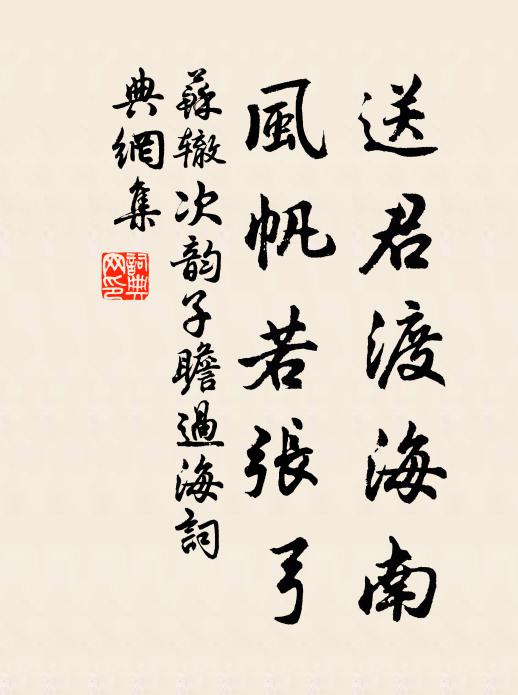 送君渡海南
風帆若張弓
蘇辙次韵子瞻過海詞
典網集
詞典
网印